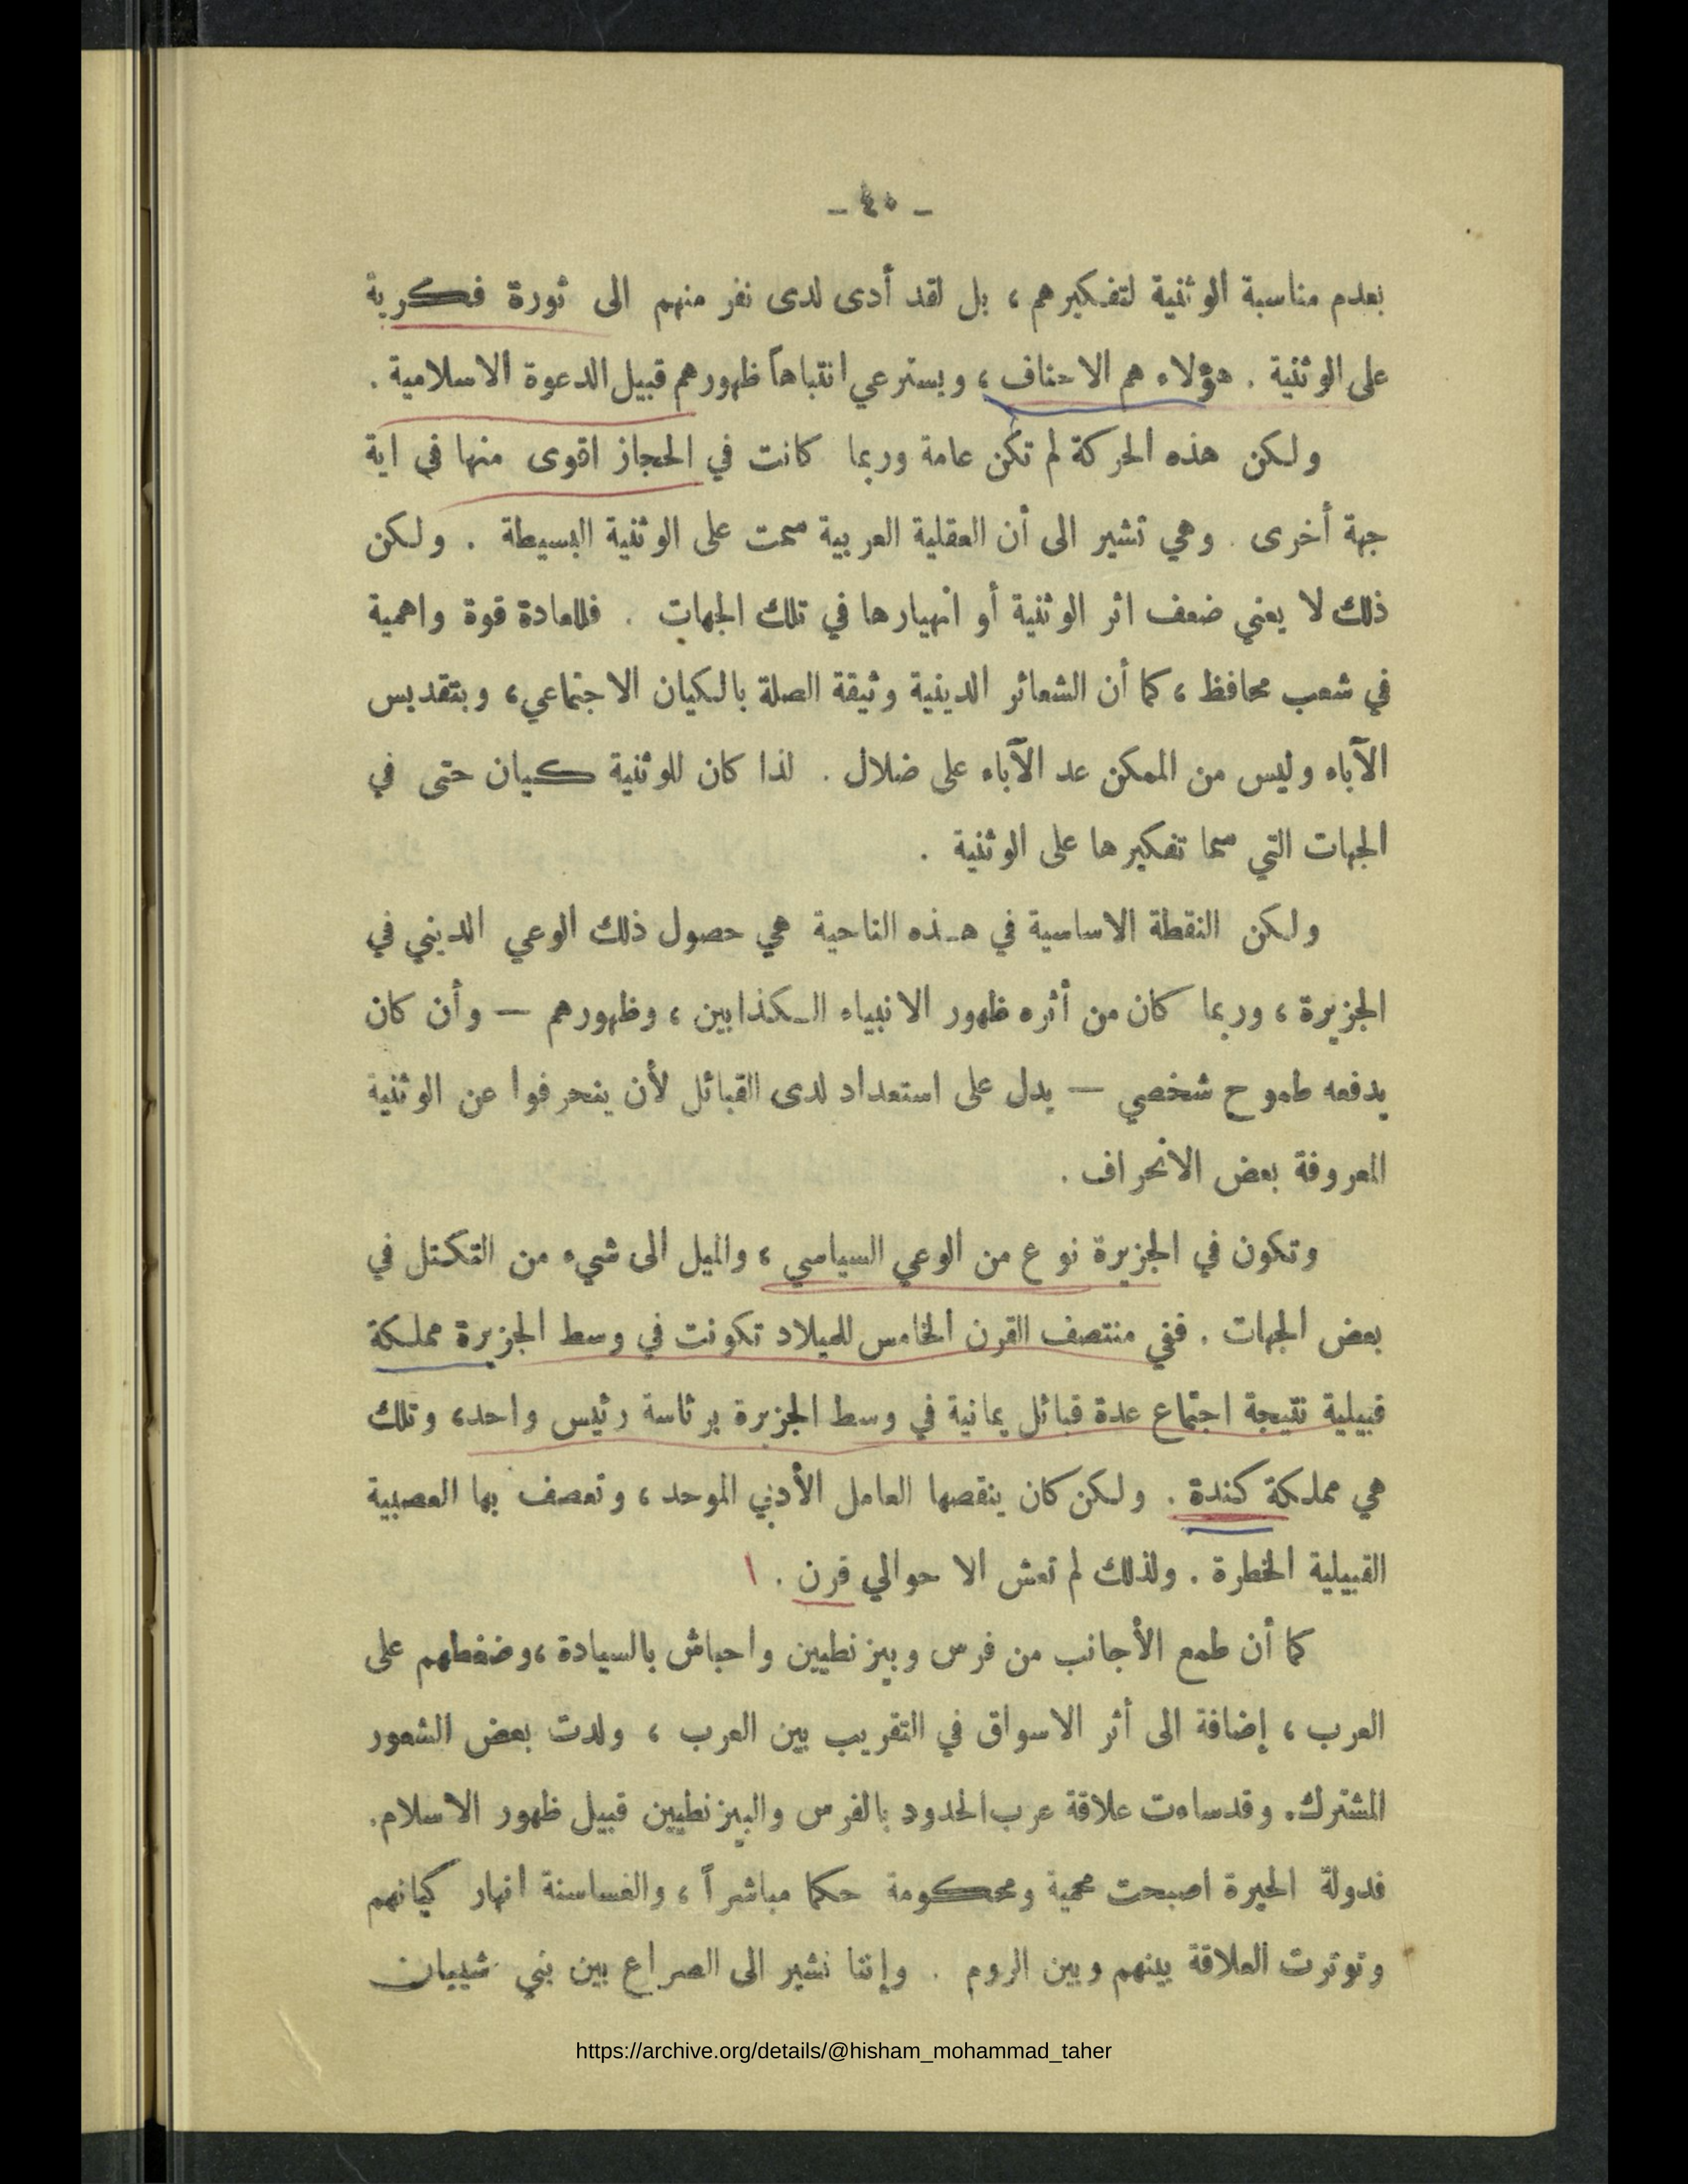 - ٤٥ -
بعدم مناسبة الوثنية لتفكيرهم ، بل لقد أدى لدى نفر منهم الى ثورة فكرية
على الوثنية . هؤلاء هم الاحناف ، ويسترعي انتباهاً ظهورهم قبيل الدعوة الاسلامية .
ولكن هذه الحركة لم تكن عامة وربما كانت في الحجاز اقوى منها في اية
جهة أخرى . وهي تشير الى أن العقلية العربية سمت على الوثنية البسيطة . ولكن
ذلك لا يعني ضعف اثر الوثنية أو انهيارها في تلك الجهات . فللعادة قوة واهمية
في شعب محافظ ، كما أن الشعائر الدينية وثيقة الصلة بالكيان الاجتماعي ، وبتقديس
الآباء وليس من الممكن عد الآباء على ضلال . لذا كان للوثنية كيان حتى في
الجهات التي سما تفكيرها على الوثنية .
ولكن النقطة الاساسية في هـذه الناحية هي حصول ذلك الوعي الديني في
الجزيرة ، وربما كان من أثره ظهور الانبياء الـكذابين ، وظهورهم — وأن كان
يدفعه طموح شخصي — يدل على استعداد لدى القبائل لأن ينحرفوا عن الوثنية
المعروفة بعض الانحراف .
وتكون في الجزيرة نوع من الوعي السياسي ، والميل الى شيء من التكتل في
بعض الجهات . ففي منتصف القرن الخامس للميلاد تكونت في وسط الجزيرة مملكة
قبيلية نتيجة اجتماع عدة قبائل يمانية في وسط الجزيرة برئاسة رئيس واحد ، وتلك
هي مملكة كندة . ولكن كان ينقصها العامل الأدبي الموحد ، وتعصف بها العصبية
القبيلية الخطرة . ولذلك لم تعش الا حوالي قرن .
كما أن طمع الأجانب من فرس وبيزنطيين واحباش بالسيادة ، وضغطهم على
العرب ، إضافة الى أثر الاسواق في التقريب بين العرب ، ولدت بعض الشعور
المشترك . وقد ساءت علاقة عرب الحدود بالفرس والبيزنطيين قبيل ظهور الاسلام .
فدولة الحيرة اصبحت محمية ومحكومة حكما مباشراً ، والغساسنة انهار كيانهم
وتوترت العلاقة بينهم وبين الروم . وإننا نشير الى الصراع بين بني شيبان
https://archive.org/details/@hisham_mohammad_taher